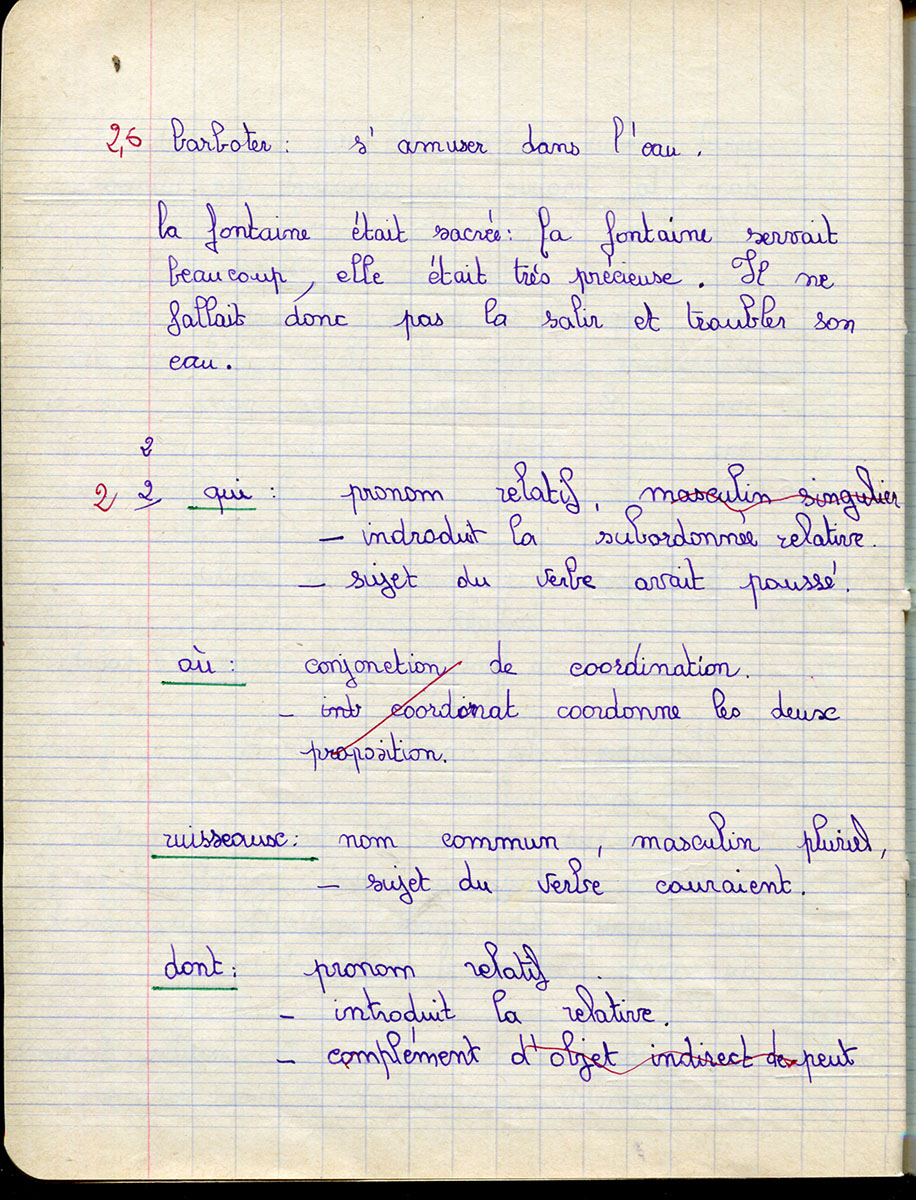 2,6 barboter : s'amuser dans l'eau.
la fontaine était sacrée : la fontaine servait
beaucoup, elle était très précieuse. Il ne
fallait donc pas la salir et troubler son
eau.
2
2 2 qui : pronom relatif, masculin singulier
- indroduit la subordonnée relative.
- sujet du verbe avait poussé.
où : conjonction de coordination.
- intr coordonat coordonne les deux
proposition.
ruisseaux : nom commun, masculin pluriel,
- sujet du verbe couraient.
dont : pronom relatif
- introduit la relative.
- complément d'objet indirect de peut